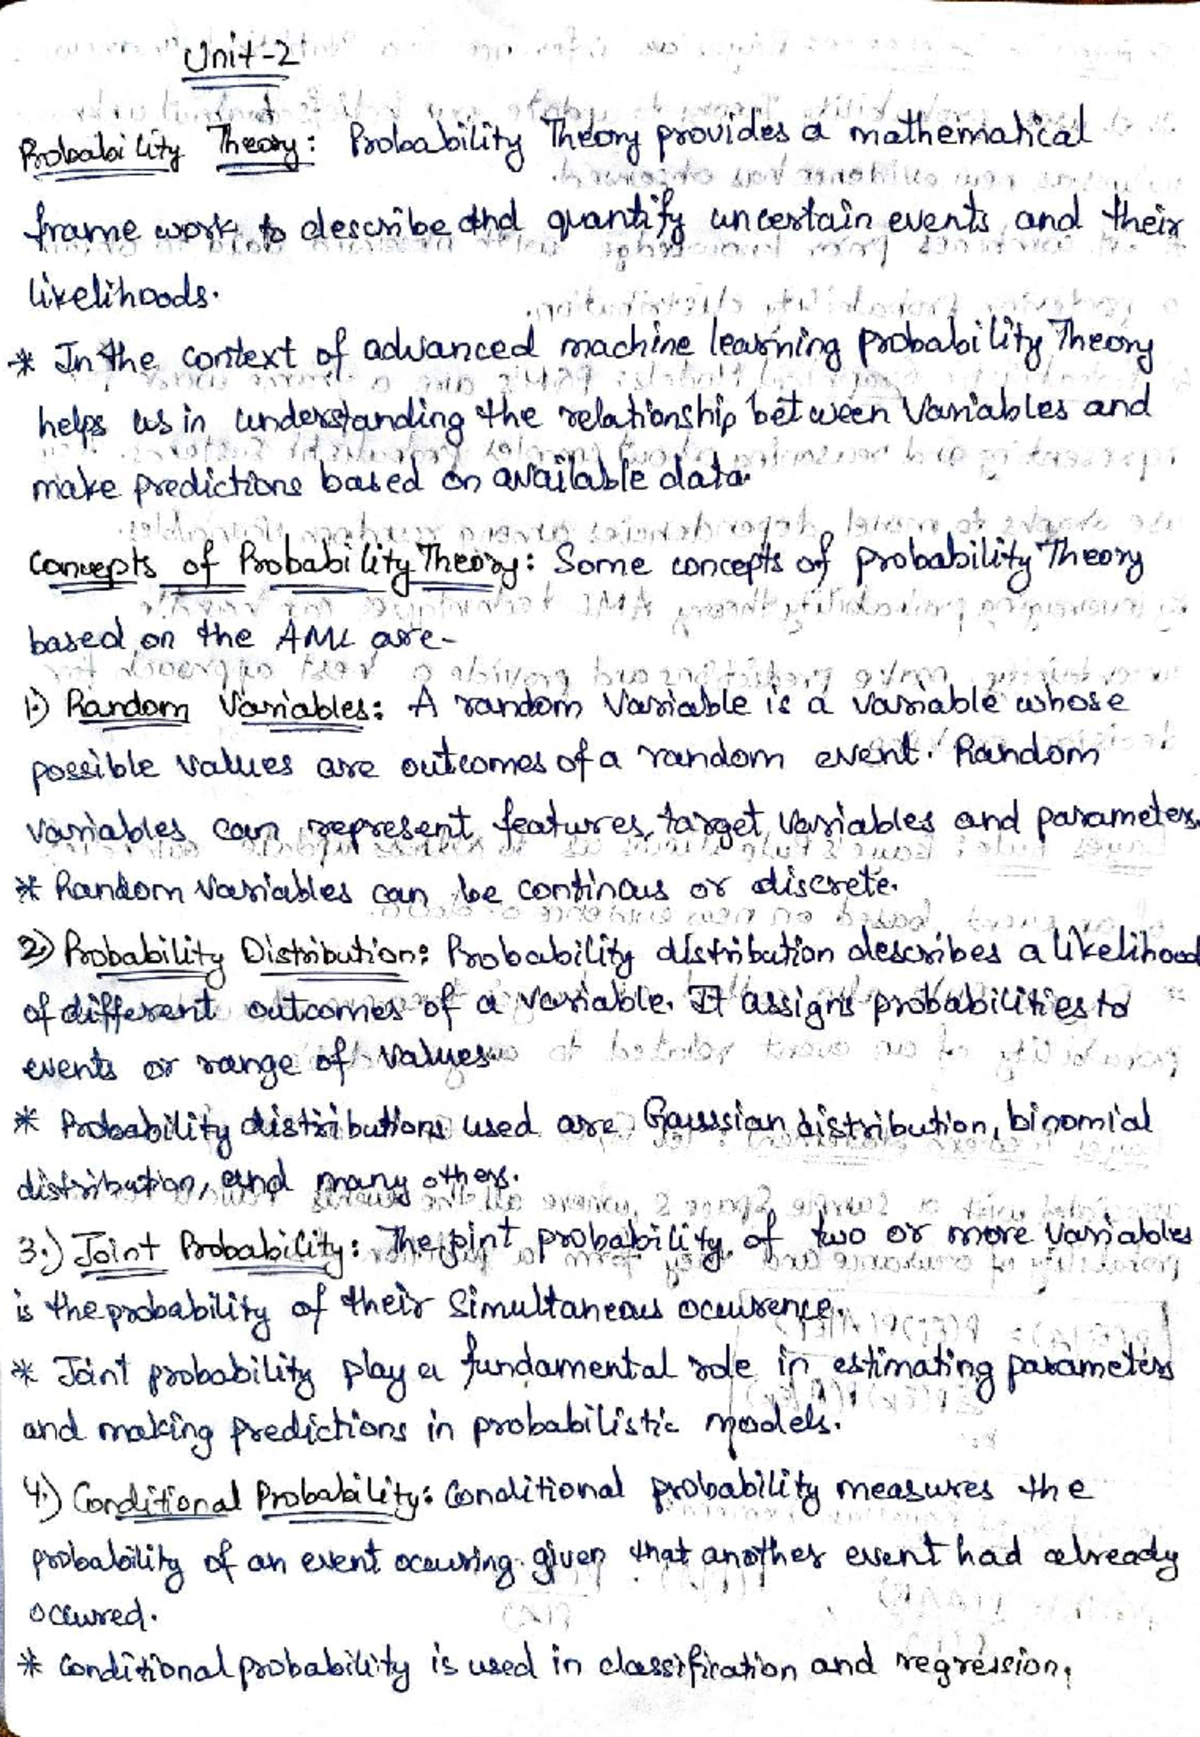 Unit-2
Probability Theory: Probability Theory provides a mathematical
frame work to describe and quantify uncertain events and their
likelihoods.
* In the context of advanced machine learning probability Theory
helps us in understanding the relationship between Variables and
make predictions based on available data.
Concepts of Probability Theory: Some concepts of probability Theory
based on the AML are-
1.) Random Variables: A random Variable is a variable whose
possible values are outcomes of a random event. Random
variables can represent features, target variables and parameters.
* Random Variables can be continous or discrete.
2) Probability Distribution: Probability distribution describes a likelihood
of different outcomes of a variable. It assigns probabilities to
events or range of values.
* Probability distributions used are Gaussian distribution, binomial
distribution, and many others.
3.) Joint Probability: The joint probability of two or more variables
is the probability of their simultaneous occurence.
* Joint probability play a fundamental role in estimating parameters
and making predictions in probabilistic models.
4.) Conditional Probability: Conditional probability measures the
probability of an event occuring given that another event had already
occured.
* Conditional probability is used in classification and regression.